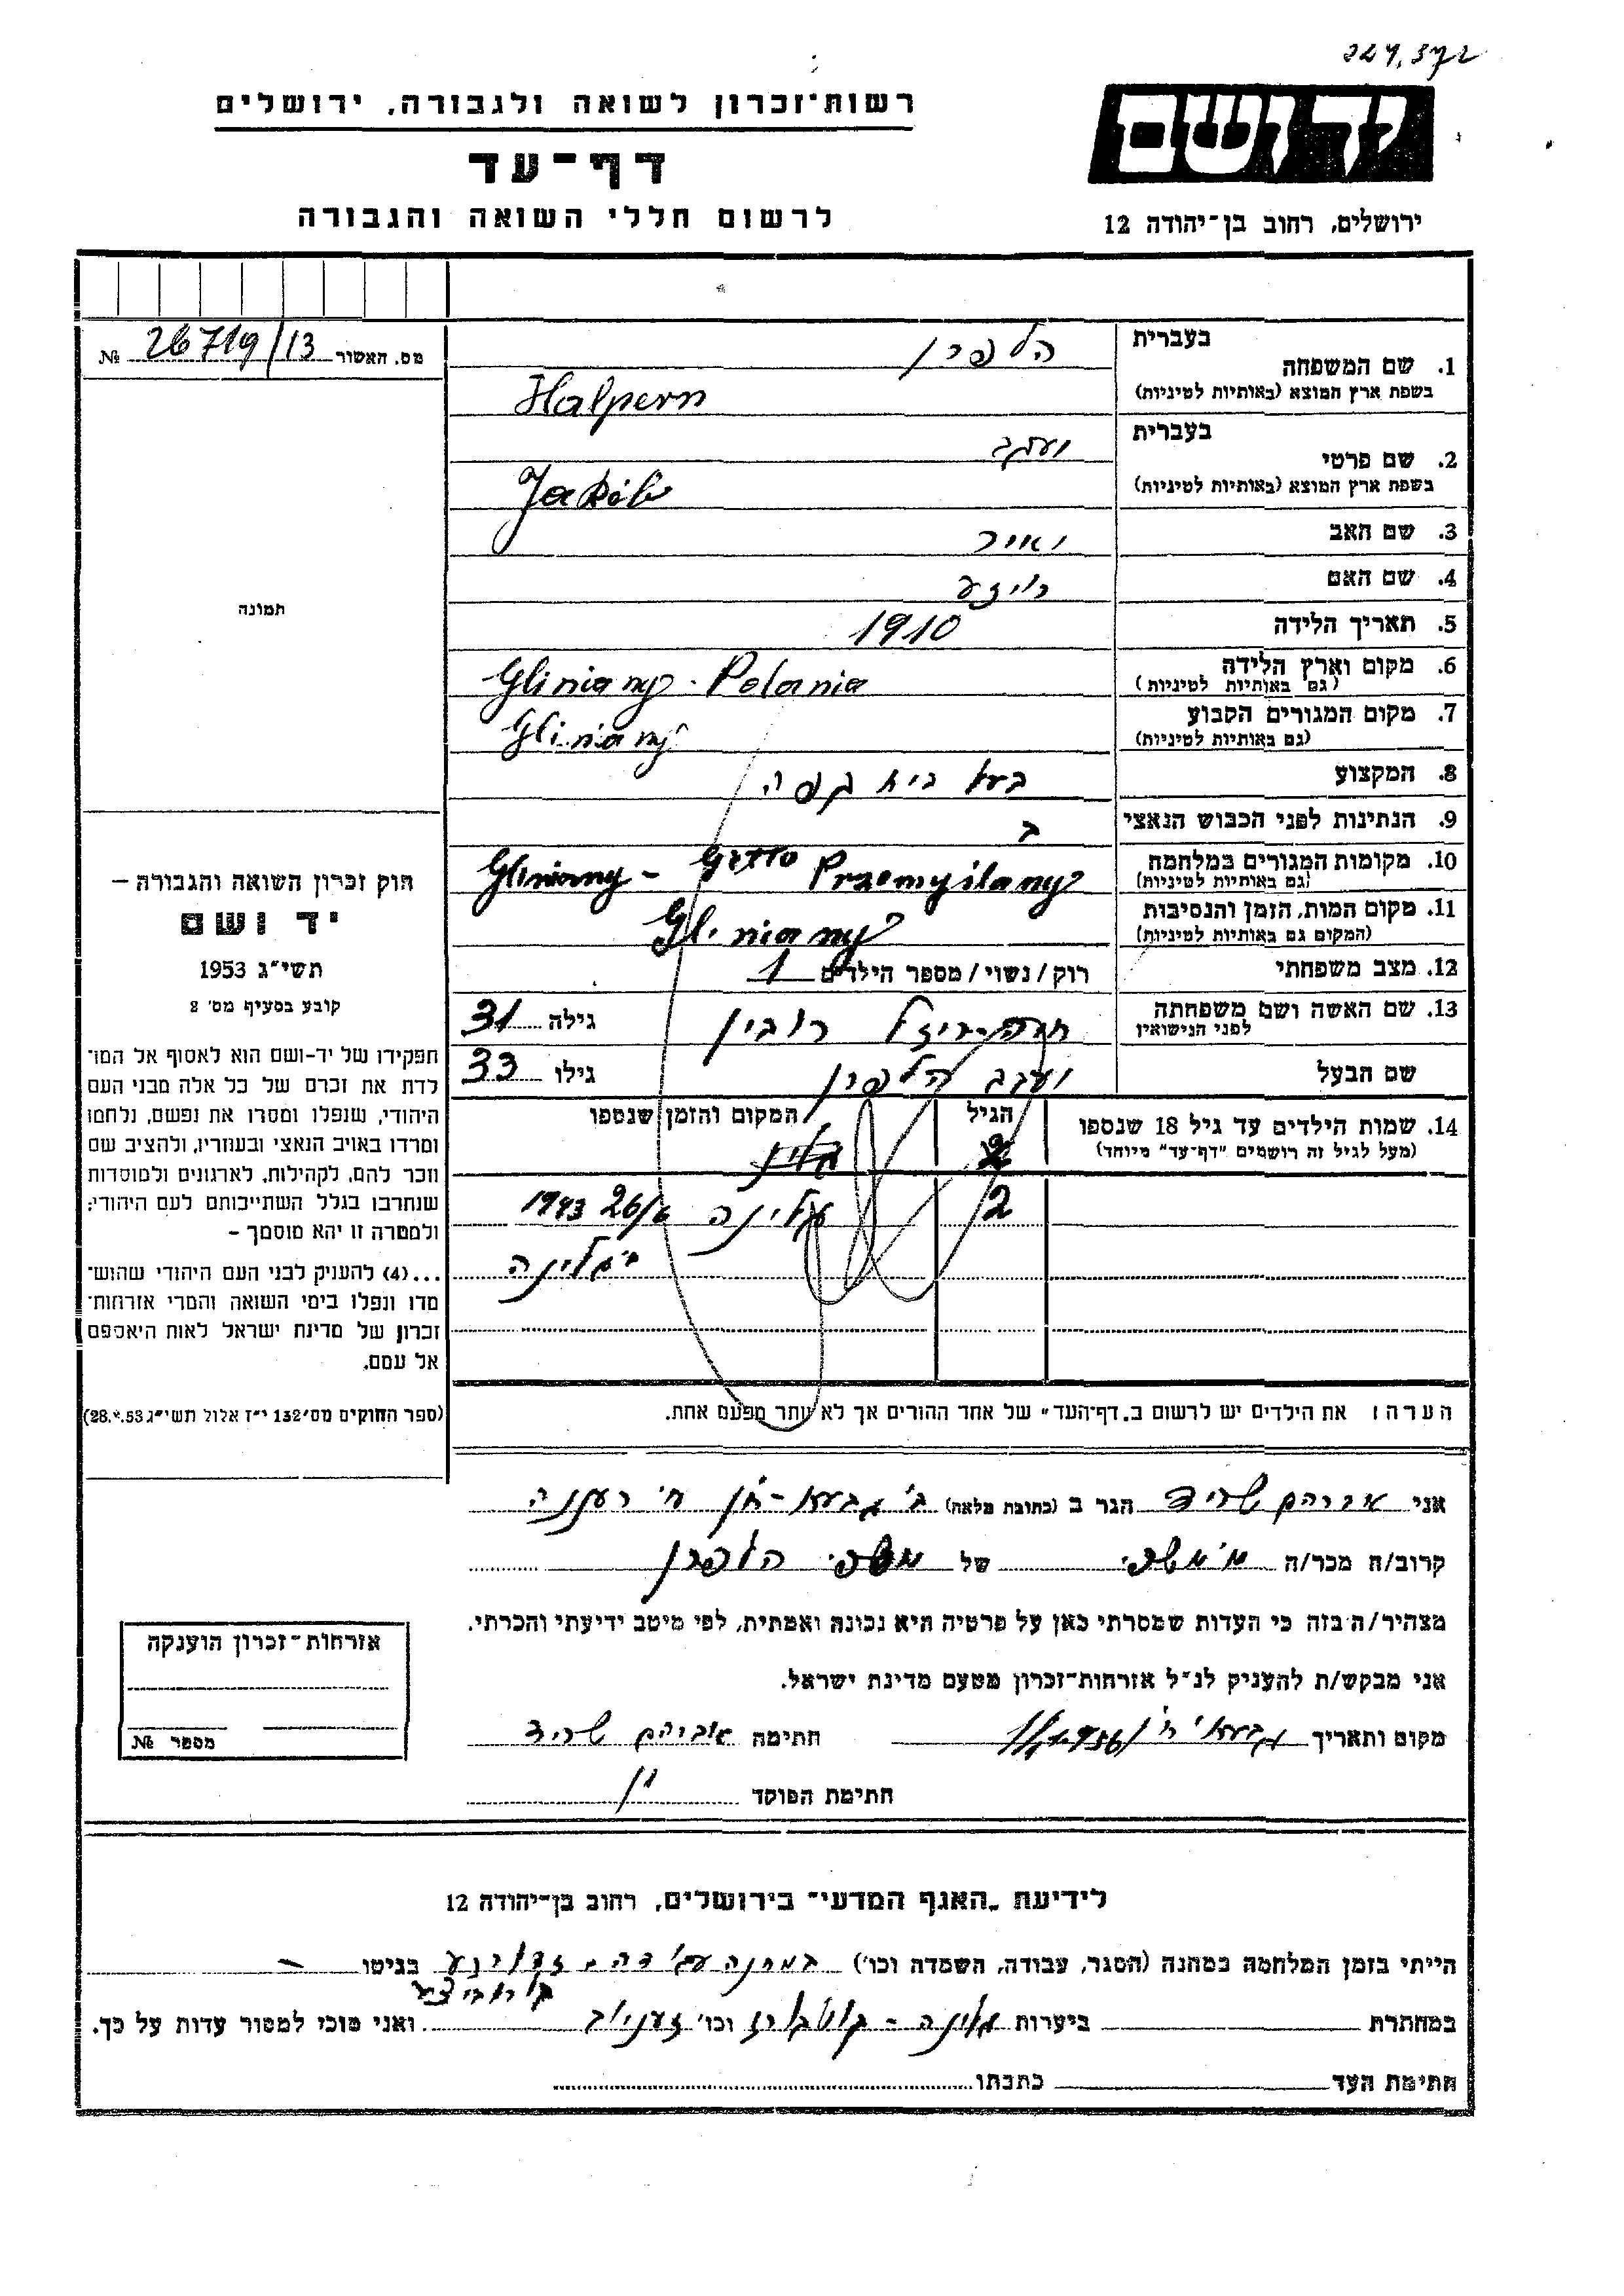 רשות-זכרון לשואה ולגבורה, ירושלים
יד ושם
דף-עד
לרשום חללי השואה והגבורה
ירושלים, רחוב בן-יהודה 12
מס. האשור 26719/13 №
בעברית
1. שם המשפחה הלפרן
בשפת ארץ המוצא (באותיות לטיניות) Halpern
בעברית
2. שם פרטי יעקב
בשפת ארץ המוצא (באותיות לטיניות) Jakób
3. שם האב מאיר
4. שם האם רייזע
5. תאריך הלידה 1910
6. מקום וארץ הלידה Gliniany - Polania
(גם באותיות לטיניות)
7. מקום המגורים הקבוע Gliniany
(גם באותיות לטיניות)
8. המקצוע בעל בית קפה
9. הנתינות לפני הכבוש הנאצי
10. מקומות המגורים במלחמה Gliniany - Getto Przemyślany
(גם באותיות לטיניות)
11. מקום המות, הזמן והנסיבות Gliniany
(המקום גם באותיות לטיניות)
12. מצב משפחתי רוק/נשוי/מספר הילדים 1
13. שם האשה ושם משפחתה רובין גילה 31
לפני הנישואין
שם הבעל יעקב הלפרן גילו 33
14. שמות הילדים עד גיל 18 שנספו הגיל המקום והזמן שנספו
(מעל לגיל זה רושמים "דף-עד" מיוחד) 2
2 גלינה 26/6 1943
בגלינה
הערה: את הילדים יש לרשום ב"דף-העד" של אחד ההורים אך לא יותר מפעם אחת.
תמונה
חוק זכרון השואה והגבורה –
יד ושם
תשי"ג 1953
קובע בסעיף מס' 2
תפקידו של יד-ושם הוא לאסוף אל המו־
לדת את זכרם של כל אלה מבני העם
היהודי, שנפלו ומסרו את נפשם, נלחמו
ומרדו באויב הנאצי ובעוזריו, ולהציב שם
וזכר להם, לקהילות, לארגונים ולמוסדות
שנחרבו בגלל השתייכותם לעם היהודי;
ולמטרה זו יהא מוסמך –
...(4) להעניק לבני העם היהודי שהוש־
מדו ונפלו בימי השואה והמרי אזרחות־
זכרון של מדינת ישראל לאות היאספם
אל עמם.
(ספר החוקים מס' 132 י"ז אלול תשי"ג 28.8.53)
אני אברהם שריד הגר ב (כתובת מלאה) רעננה
קרוב/ה מכר/ה של משפ' הלפרן
מצהיר/ה בזה כי העדות שמסרתי כאן על פרטיה היא נכונה ואמתית, לפי מיטב ידיעתי והכרתי.
אני מבקש/ת להעניק לנ"ל אזרחות-זכרון מטעם מדינת ישראל.
מקום ותאריך חתימה אברהם שריד
חתימת הפוקד
אזרחות-זכרון הוענקה
מספר №
לידיעת "האגף המדעי" בירושלים, רחוב בן-יהודה 12
הייתי בזמן המלחמה במחנה (הסגר, עבודה, השמדה וכו') בגיטו
במחתרת ביערות גלינה וכו' ואני מוכן למסור עדות על כך.
חתימת העד כתבתו